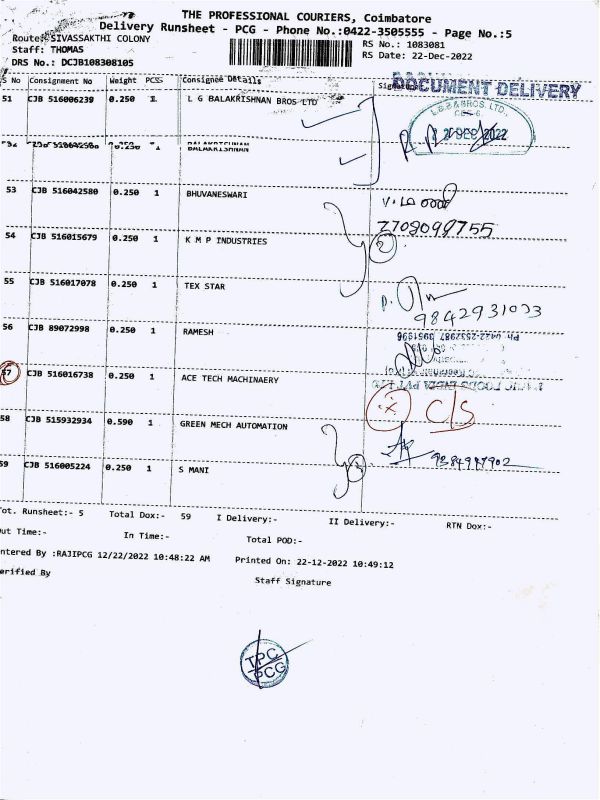 THE PROFESSIONAL COURIERS, Coimbatore
Delivery Runsheet - PCG - Phone No.:0422-3505555 - Page No.:5
Route: SIVASSAKTHI COLONY
RS No.: 1083081
Staff: THOMAS
RS Date: 22-Dec-2022
DRS No.: DCJB108308105
S No Consignment No Weight PCS Consignee Details Signature
DOCUMENT DELIVERY
51 CJB 516006239 0.250 1 L G BALAKRISHNAN BROS LTD
L.G.B & BROS. LTD.,
DEC 2022
BALAKRISHNAN
53 CJB 516042580 0.250 1 BHUVANESWARI
7708099755
54 CJB 516015679 0.250 1 K M P INDUSTRIES
2
55 CJB 516017078 0.250 1 TEX STAR
9842931033
56 CJB 89072998 0.250 1 RAMESH
57 CJB 516016738 0.250 1 ACE TECH MACHINAERY
C/S
58 CJB 515932934 0.590 1 GREEN MECH AUTOMATION
59 CJB 516005224 0.250 1 S MANI
Tot. Runsheet:- 5 Total Dox:- 59 I Delivery:- II Delivery:- RTN Dox:-
Out Time:- In Time:- Total POD:-
Entered By :RAJIPCG 12/22/2022 10:48:22 AM Printed On: 22-12-2022 10:49:12
Verified By Staff Signature
TPC
PCG